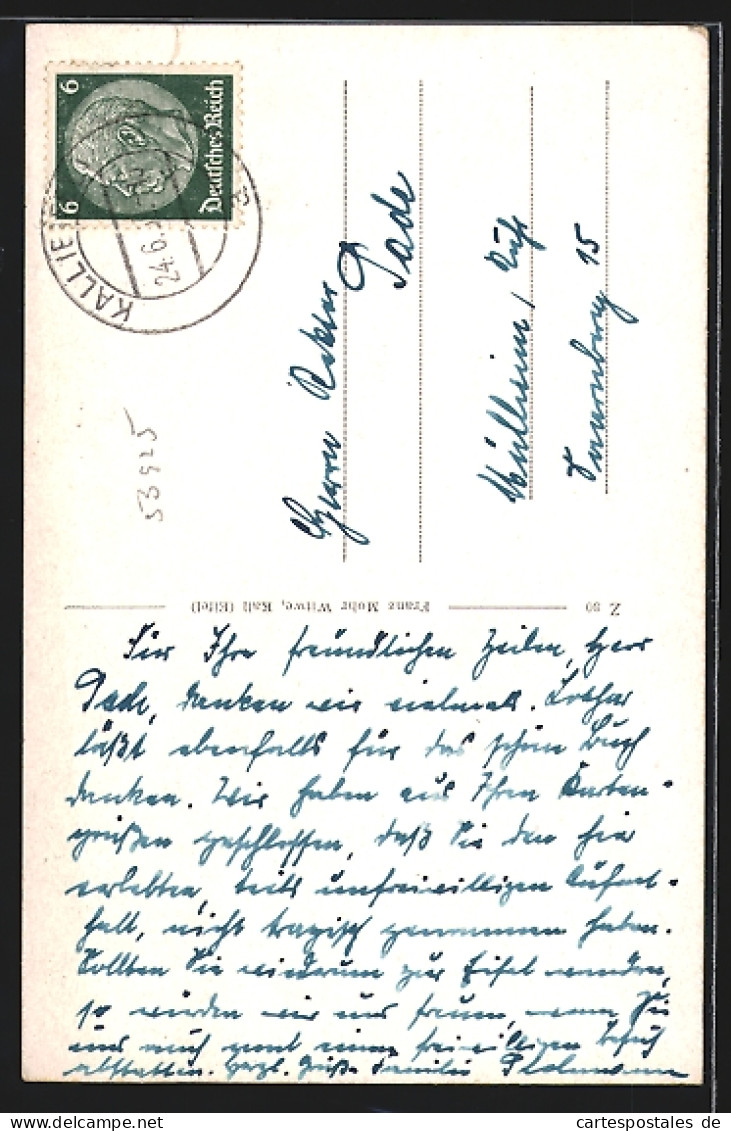 6 6
Deutsches Reich
KALL
24.6.
Herrn Rektor
Pade
Mülheim, Ruhr
15
53925
Z 80 Franz Mohr Witwe, Kall (Eifel)
Für Ihre freundlichen Zeilen, Herr
Pade, danken wir vielmals. Lothar
läßt ebenfalls für das schöne Buch
danken. Wir haben aus Ihren Karten-
grüßen geschlossen, daß Sie den hier
erlebten, teils unfreiwilligen Aufent-
halt, nicht tragisch genommen haben.
Sollten Sie wiederum zur Eifel wandern,
so würden wir uns freuen, wenn Sie
uns auch einen freiwilligen Besuch
abstatten. Herzl. Grüße Familie
cartespostales.de